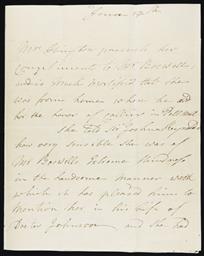 Mrs Abington presents her
Compliments to Mr Boswell
and is Much Mortified that she
was from home when he did
her the honor of calling in Pall Mall
she told Sir Joshua Reynolds
how very sensible she was of
Mr Boswells Extreme kindness
in the handsome manner with
which it has pleased him to
Mention her in his Life of
Doctor Johnson and she had